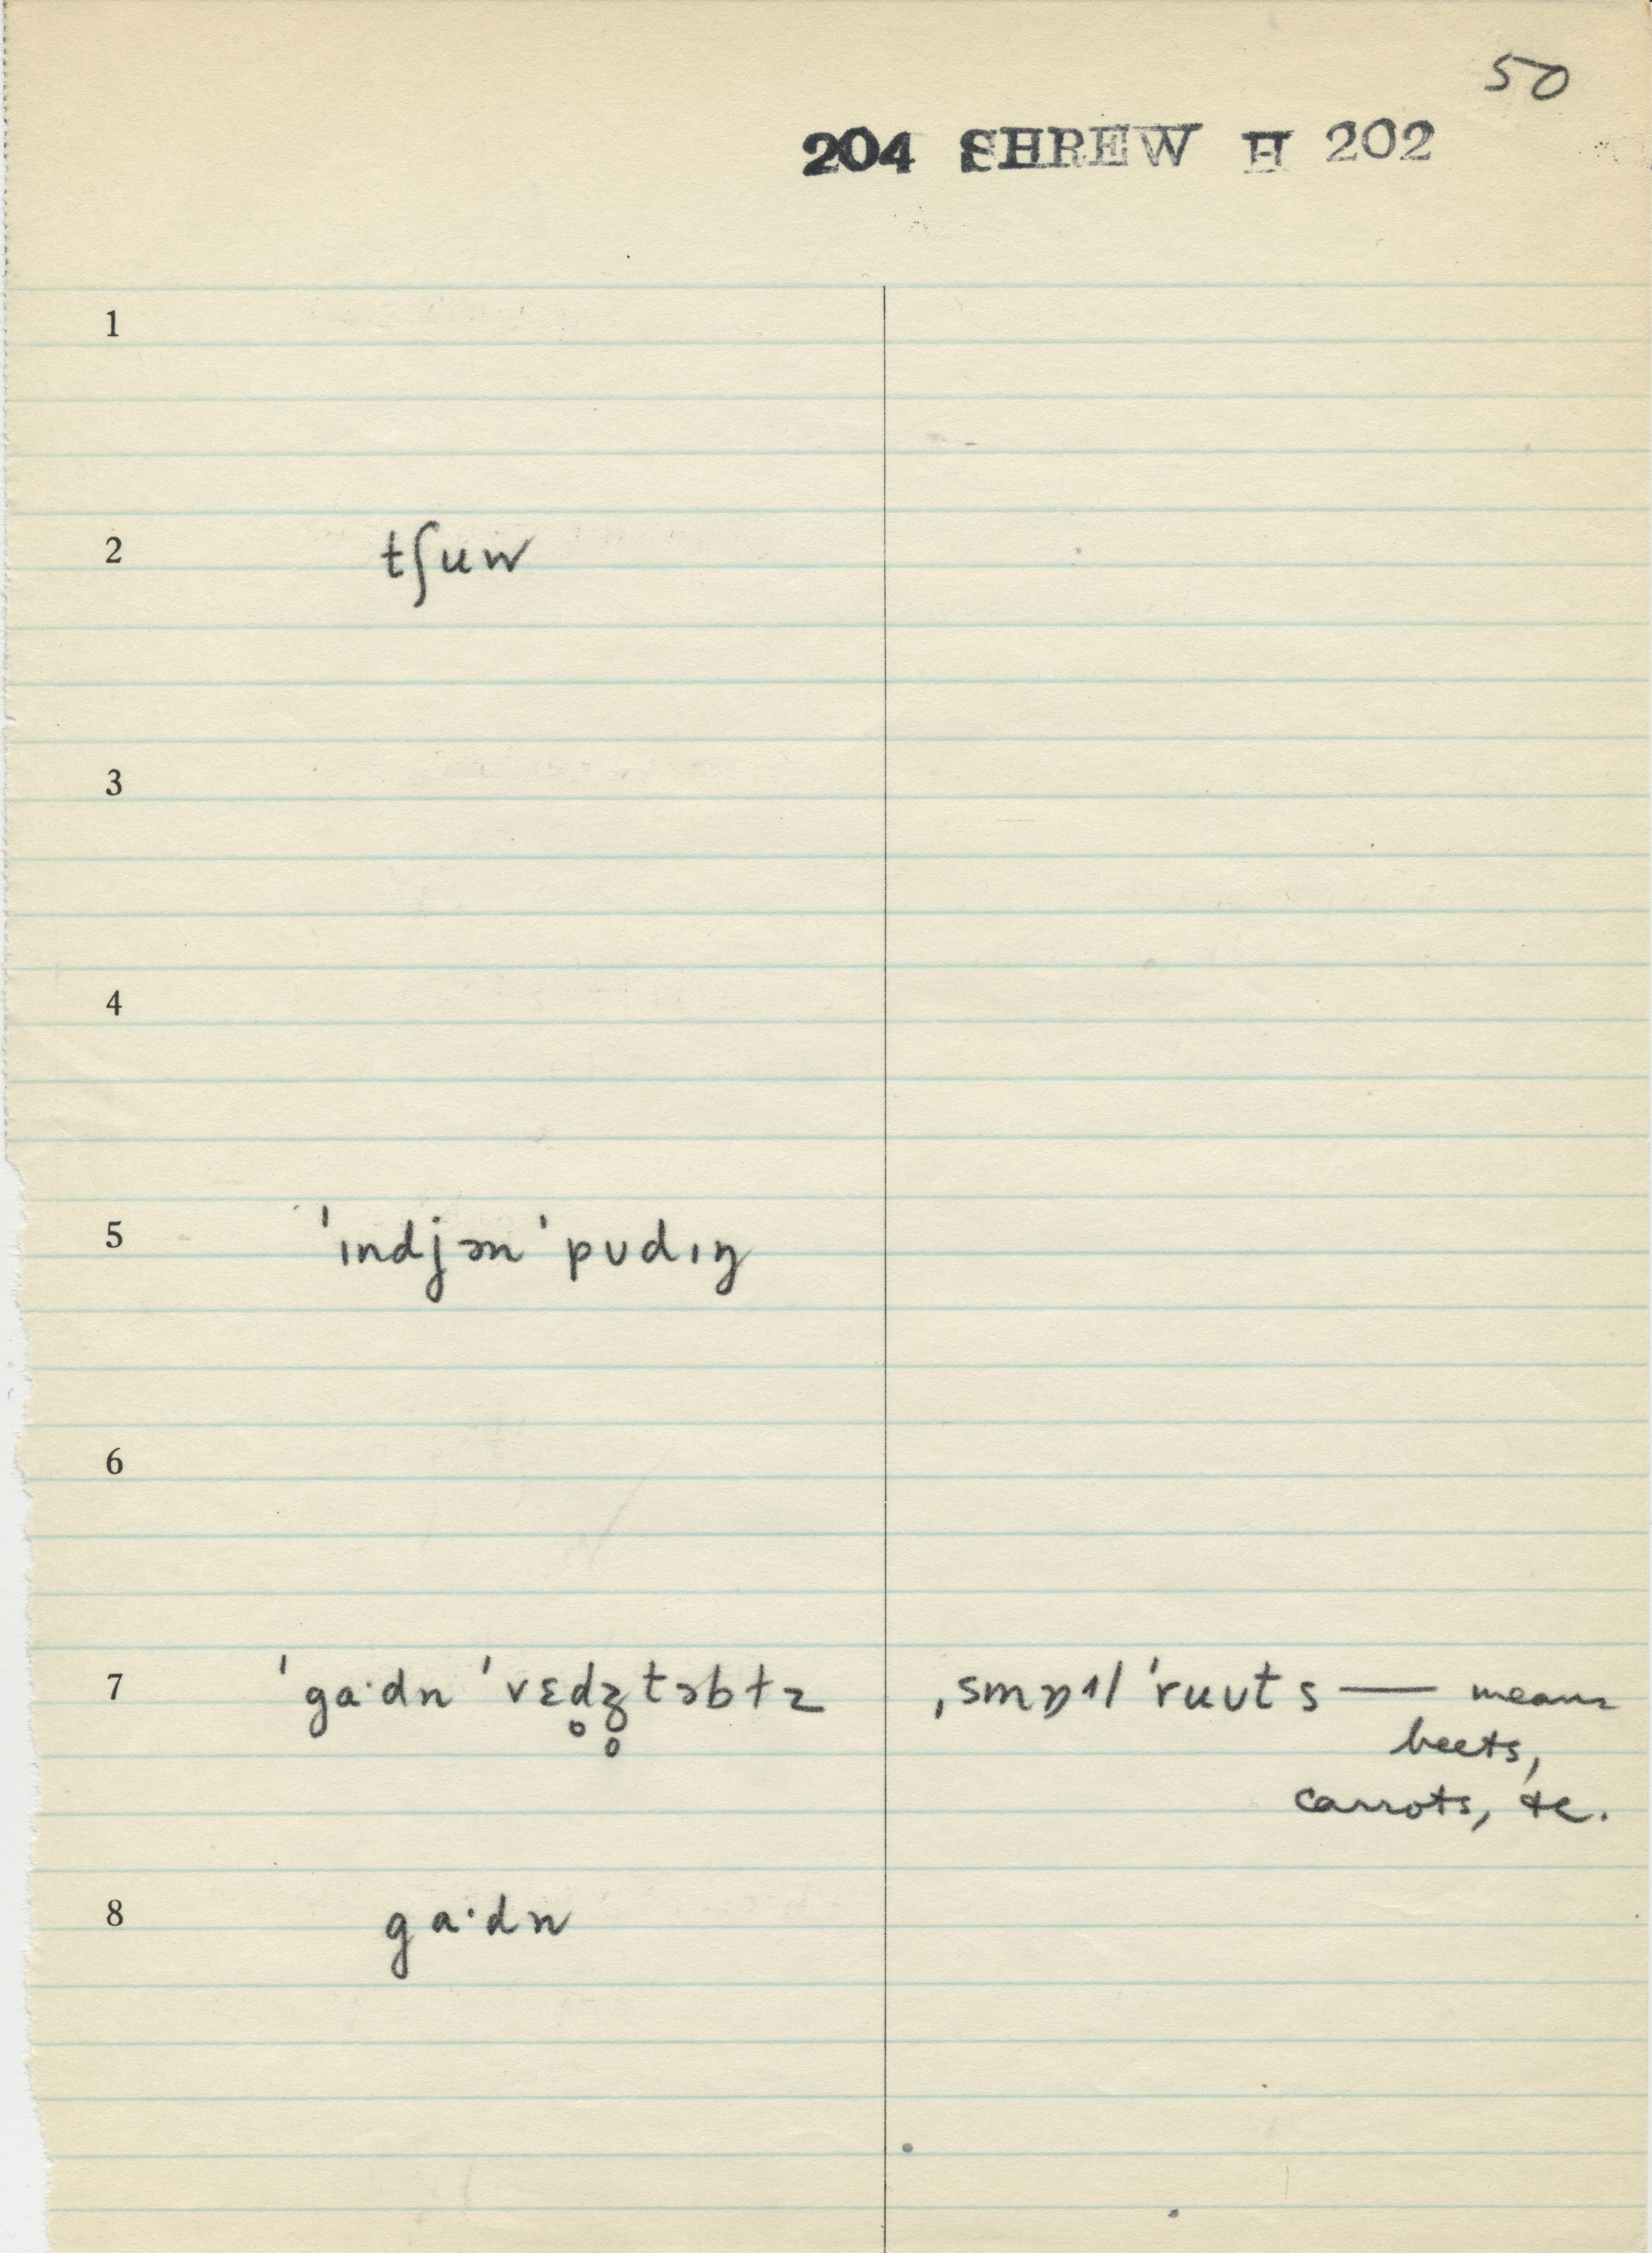 50
204 SHREW H 202
1
2 tʃuw
3
4
5 ˈɪndjən ˈpʊdɪŋ
6
7 ˈgaˑdn ˈvɛd̥ʒ̊təbɫz ˌsmɒᵊl ˈruʊts — means
beets,
carrots, &c.
8 gaˑdn